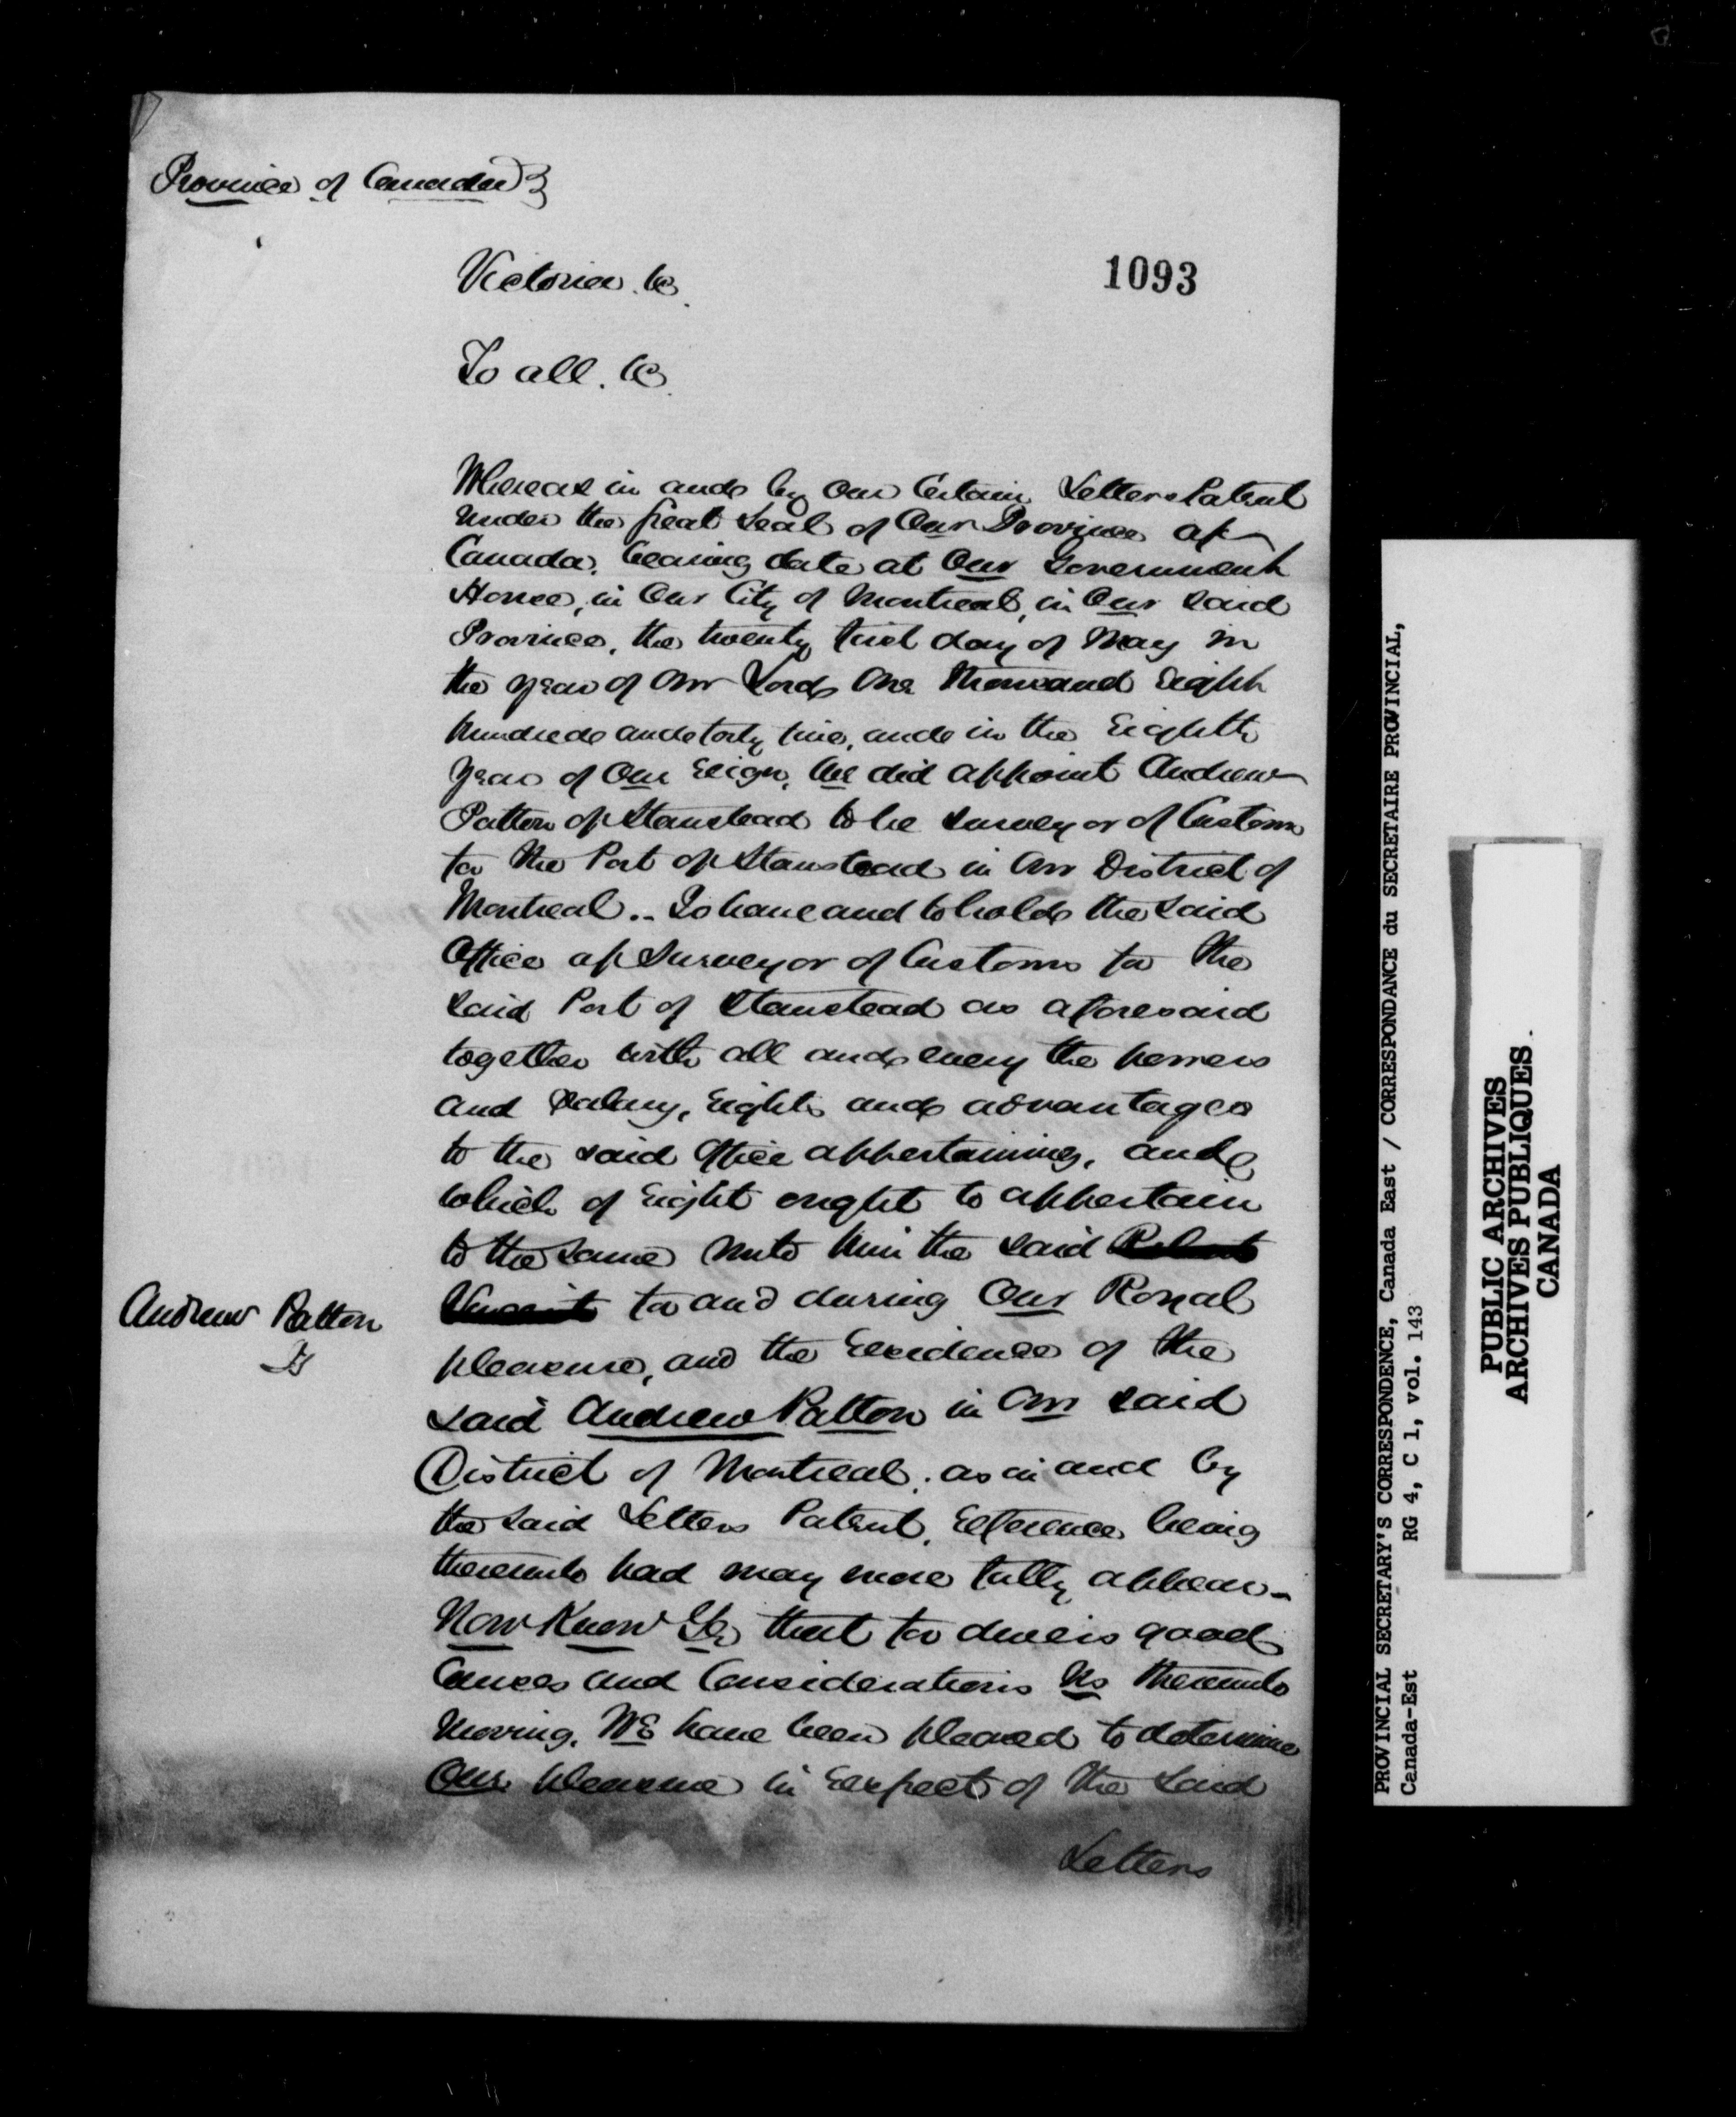 Province of Canada }
1093
Victoria &c.
To all. &c.
Whereas in and by Our Certain Letters Patent
Under the Great Seal of Our Province of
Canada, bearing date at Our Government
House, in Our City of Montreal, in Our said
Province, the twenty first day of May in
the year of Our Lord One thousand Eight
hundred and forty five, and in the Eighth
year of Our Reign, We did appoint Andrew
Patton of Stanstead to be Surveyor of Customs
for the Port of Stanstead in Our District of
Montreal.. To have and to hold the said
Office of Surveyor of Customs for the
said Port of Stanstead as aforesaid
together with all and every the powers
and Salary, Rights and advantages
to the said Office appertaining, and
which of Right ought to appertain
to the same unto him the said
Andrew Patton
for and during Our Royal
pleasure, and the Residence of the
said Andrew Patton in Our said
District of Montreal. as in and by
the said Letters Patent, Reference being
thereunto had may more fully appear-
Now Know Ye, that for divers good
Causes and Considerations Us thereunto
Moving, We have been pleased to determine
Our pleasure in Respect of the said
Letters
PROVINCIAL SECRETARY'S CORRESPONDENCE, Canada East / CORRESPONDANCE du SECRETAIRE PROVINCIAL,
Canada-Est RG 4, C 1, vol. 143
PUBLIC ARCHIVES
ARCHIVES PUBLIQUES
CANADA